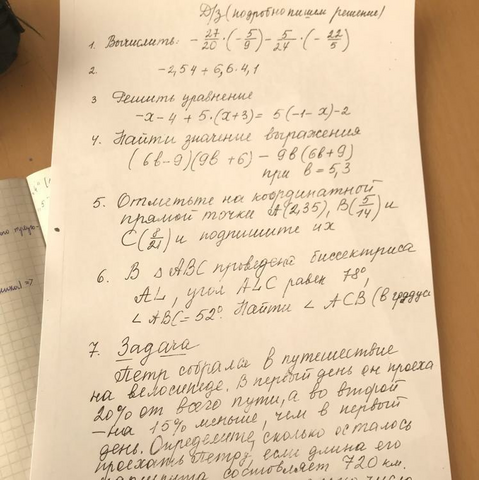 Д/з (подробно пишем решение)
1. Вычислить: -27/20·(-5/9)-5/24·(-22/5)
2. -2,54+6,6·4,1
3 Решить уравнение
-x-4+5·(x+3)=5(-1-x)-2
4. Найти значение выражения
(6в-9)(9в+6)-9в(6в+9)
при в=5,3
5. Отметьте на координатной
прямой точки A(2,35), B(5/14) и
C(8/21) и подпишите их
6. В △ABC проведена биссектриса
AL, угол ALC равен 78°,
∠ABC=52°. Найти ∠ACB (в градуса
7. Задача
Петр собрался в путешествие
на велосипеде. В первый день он проеха
20% от всего пути, а во второй
-на 15% меньше, чем в первый
день. Определите, сколько осталось
проехать Петру, если длина его
маршрута составляет 720 км.